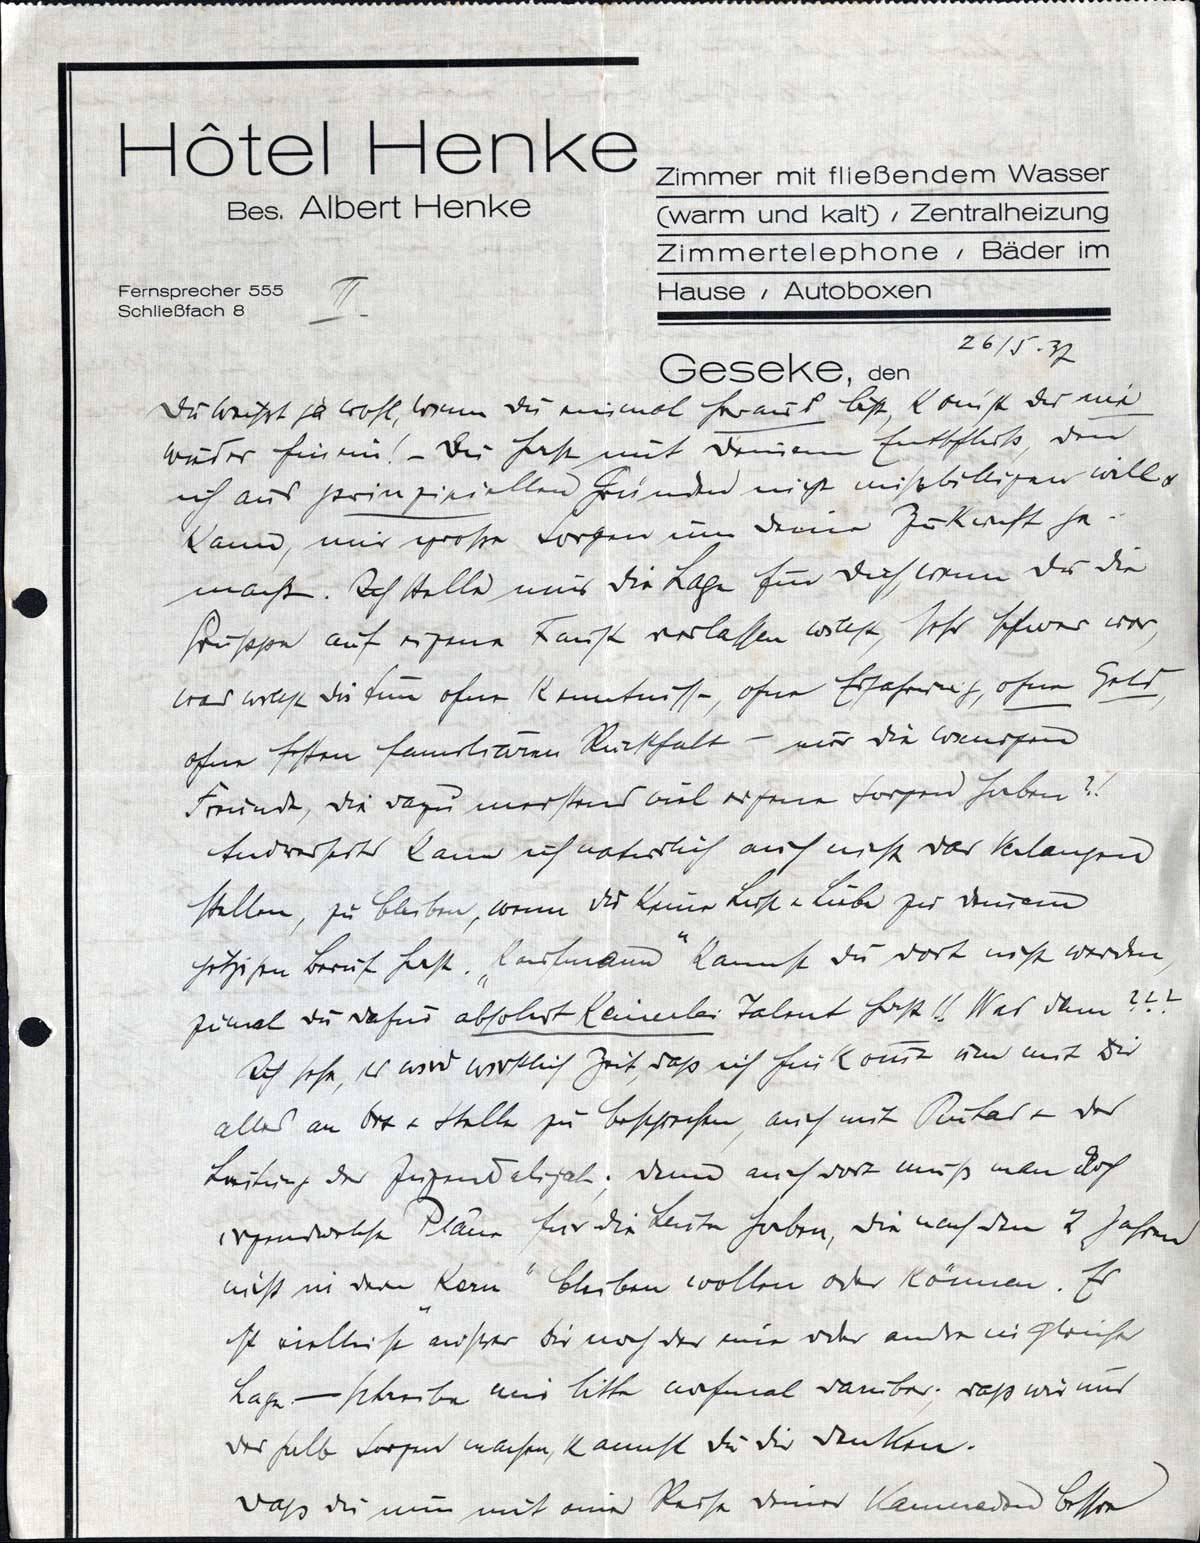 Hôtel Henke
Bes. Albert Henke
Fernsprecher 555
Schließfach 8
II
Zimmer mit fließendem Wasser
(warm und kalt) / Zentralheizung
Zimmertelephone / Bäder im
Hause / Autoboxen
Geseke, den
26/5.37
Du weisst ja wohl, wenn Du einmal heraus bist, kannst du nie
wieder hinein! – Du hast mit Deinem Entschluss, den
ich aus prinzipiellen Gründen nicht missbilligen will &
kann, mir grosse Sorgen um Deine Zukunft ge-
macht. Ich stelle mir die Lage für Dich, wenn Du die
Gruppe auf eigene Faust verlassen willst, sehr schwer vor,
was willst Du tun ohne Kenntnisse, ohne Erfahrung, ohne Geld,
ohne festen familiären Rückhalt – nur die wenigen
Freunde, die dazu meistens viel eigene Sorgen haben?!
Andrerseits kann ich natürlich auch nicht das Verlangen
stellen, zu bleiben, wenn du keine Lust & Liebe zu deinem
jetzigen Beruf hast. „Kaufmann" kannst du dort nicht werden,
zumal du dafür absolut keinerlei Talent hast!! Was dann???
Ich sehe, es wird wirklich Zeit, dass ich hinkomme um mit Dir
alles an Ort & Stelle zu besprechen, auch mit & der
Leitung der Jugendalijah; denn auch dort muss man doch
irgendwelche Pläne für die Leute haben, die nach den 2 Jahren
nicht in dem „Kern" bleiben wollen oder können. Er
ist vielleicht ausser Dir noch der eine oder andre in gleicher
Lage – schreibe mir bitte nochmal darüber; dass wir uns
deshalb Sorgen machen, kannst du dir denken.
Dass du nun mit einer Reihe deiner Kameraden besser